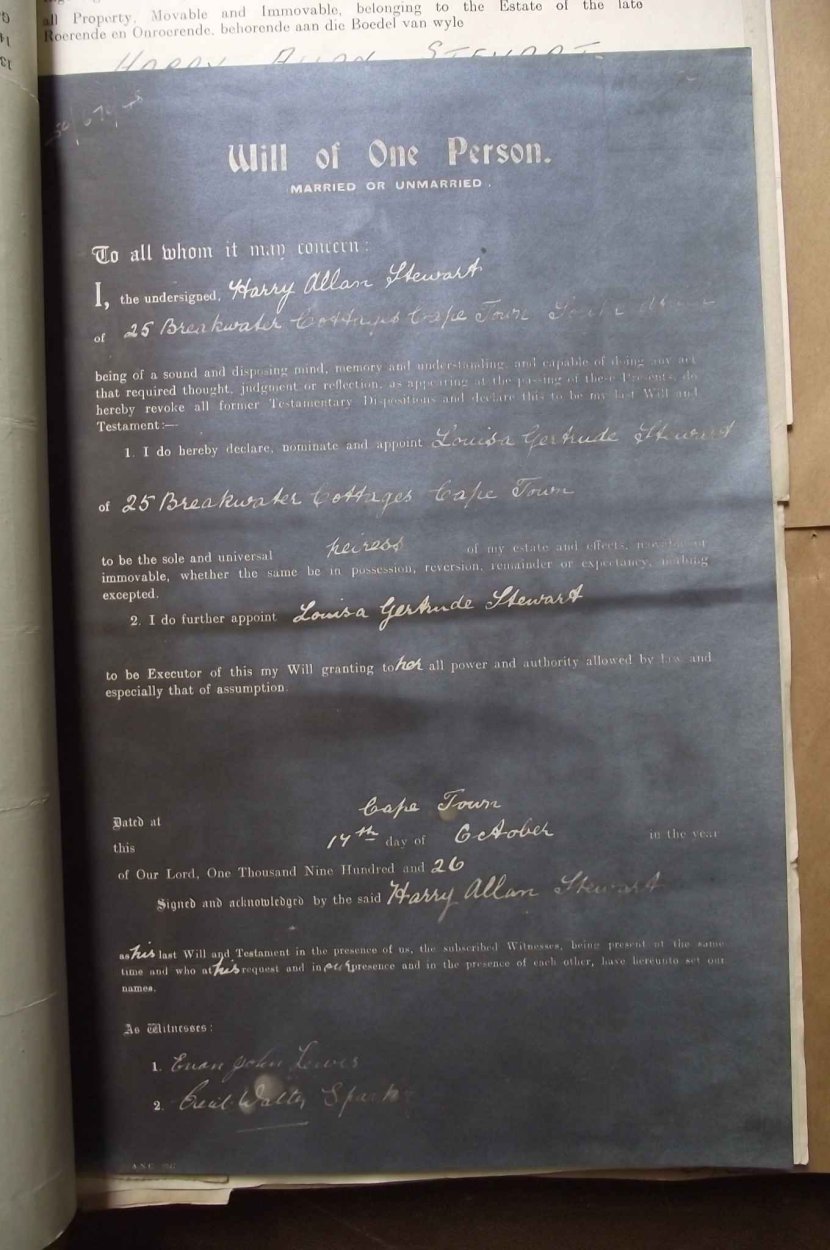 all Property, Movable and Immovable, belonging to the Estate of the late
Roerende en Onroerende, behorende aan die Boedel van wyle
HARRY ALLAN STEWART
Will of One Person.
MARRIED OR UNMARRIED.
To all whom it may concern:
I, the undersigned, Harry Allan Stewart
of 25 Breakwater Cottages Cape Town South Africa
being of a sound and disposing mind, memory and understanding, and capable of doing any act
that required thought, judgment or reflection, as appearing at the passing of these Presents, do
hereby revoke all former Testamentary Dispositions and declare this to be my last Will and
Testament:—
1. I do hereby declare, nominate and appoint Louisa Gertrude Stewart
of 25 Breakwater Cottages Cape Town
to be the sole and universal heiress of my estate and effects, movable or
immovable, whether the same be in possession, reversion, remainder or expectancy, nothing
excepted.
2. I do further appoint Louisa Gertrude Stewart
to be Executor of this my Will granting to her all power and authority allowed by law and
especially that of assumption.
Dated at Cape Town
this 14th day of October in the year
of Our Lord, One Thousand Nine Hundred and 26
Signed and acknowledged by the said Harry Allan Stewart
as his last Will and Testament in the presence of us, the subscribed Witnesses, being present at the same
time and who at his request and in our presence and in the presence of each other, have hereunto set our
names.
As Witnesses:
1. Euan John Lewis
2. Cecil Walter